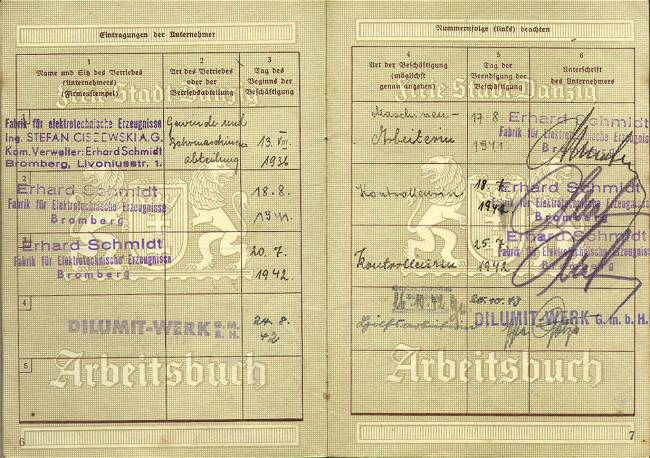 Eintragungen der Unternehmer
1
Name und Sitz des Betriebes
(Unternehmers)
(Firmenstempel)
2
Art des Betriebes
oder der
Betriebsabteilung
3
Tag des
Beginns der
Beschäftigung
Freie Stadt Danzig
1
Fabrik für elektrotechnische Erzeugnisse
Ing. STEFAN CISZEWSKI A.G.
Kom. Verwalter: Erhard Schmidt
Bromberg, Livoniusstr. 1.
Gewinde und
abteilung
13. VIII.
1936
2
Erhard Schmidt
Fabrik für Elektrotechnische Erzeugnisse
Bromberg
18.8.
1941.
3
Erhard Schmidt
Fabrik für Elektrotechnische Erzeugnisse
Bromberg
20.7.
1942.
4
DILUMIT-WERK G.M.B.H.
24.8.
42
5
Arbeitsbuch
6
Nummernfolge (links) beachten
4
Art der Beschäftigung
(möglichst
genau angeben)
5
Tag der
Beendigung der
Beschäftigung
6
Unterschrift
des Unternehmers
Freie Stadt Danzig
Maschinen-
Arbeiterin
17.8.
1941
Erhard Schmidt
Fabrik für Elektrotechnische Erzeugnisse
Bromberg
Kontrolleurin
18.7.
1942
Erhard Schmidt
Fabrik für Elektrotechnische Erzeugnisse
Bromberg
Kontrolleurin
25.7.
1942
Erhard Schmidt
Fabrik für Elektrotechnische Erzeugnisse
Bromberg
Hilfsarbeiterin
20.10.43
DILUMIT-WERK G.m.b.H.
Arbeitsbuch
7